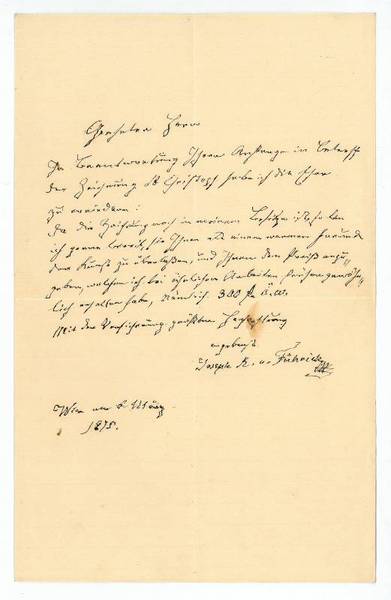 Geehrter Herr
In Beantwortung Ihrer Anfrage in Betreff
der Zeichnung St Christoph habe ich die Ehre
zu erwiedern:
Da die Zeichnung noch in meinem Besitze ist, so bin
ich gerne bereit, sie Ihnen als einem warmen Freund
der Kunst zu überlaßen, und Ihnen den Preiß anzu=
geben, welchen ich bei ähnlichen Arbeiten
lich erhalten habe, nämlich 300 f. ö.W.
Mit der Versicherung größter Hochachtung
ergebenst
Joseph R. v. Führich
Wien am März
1875.